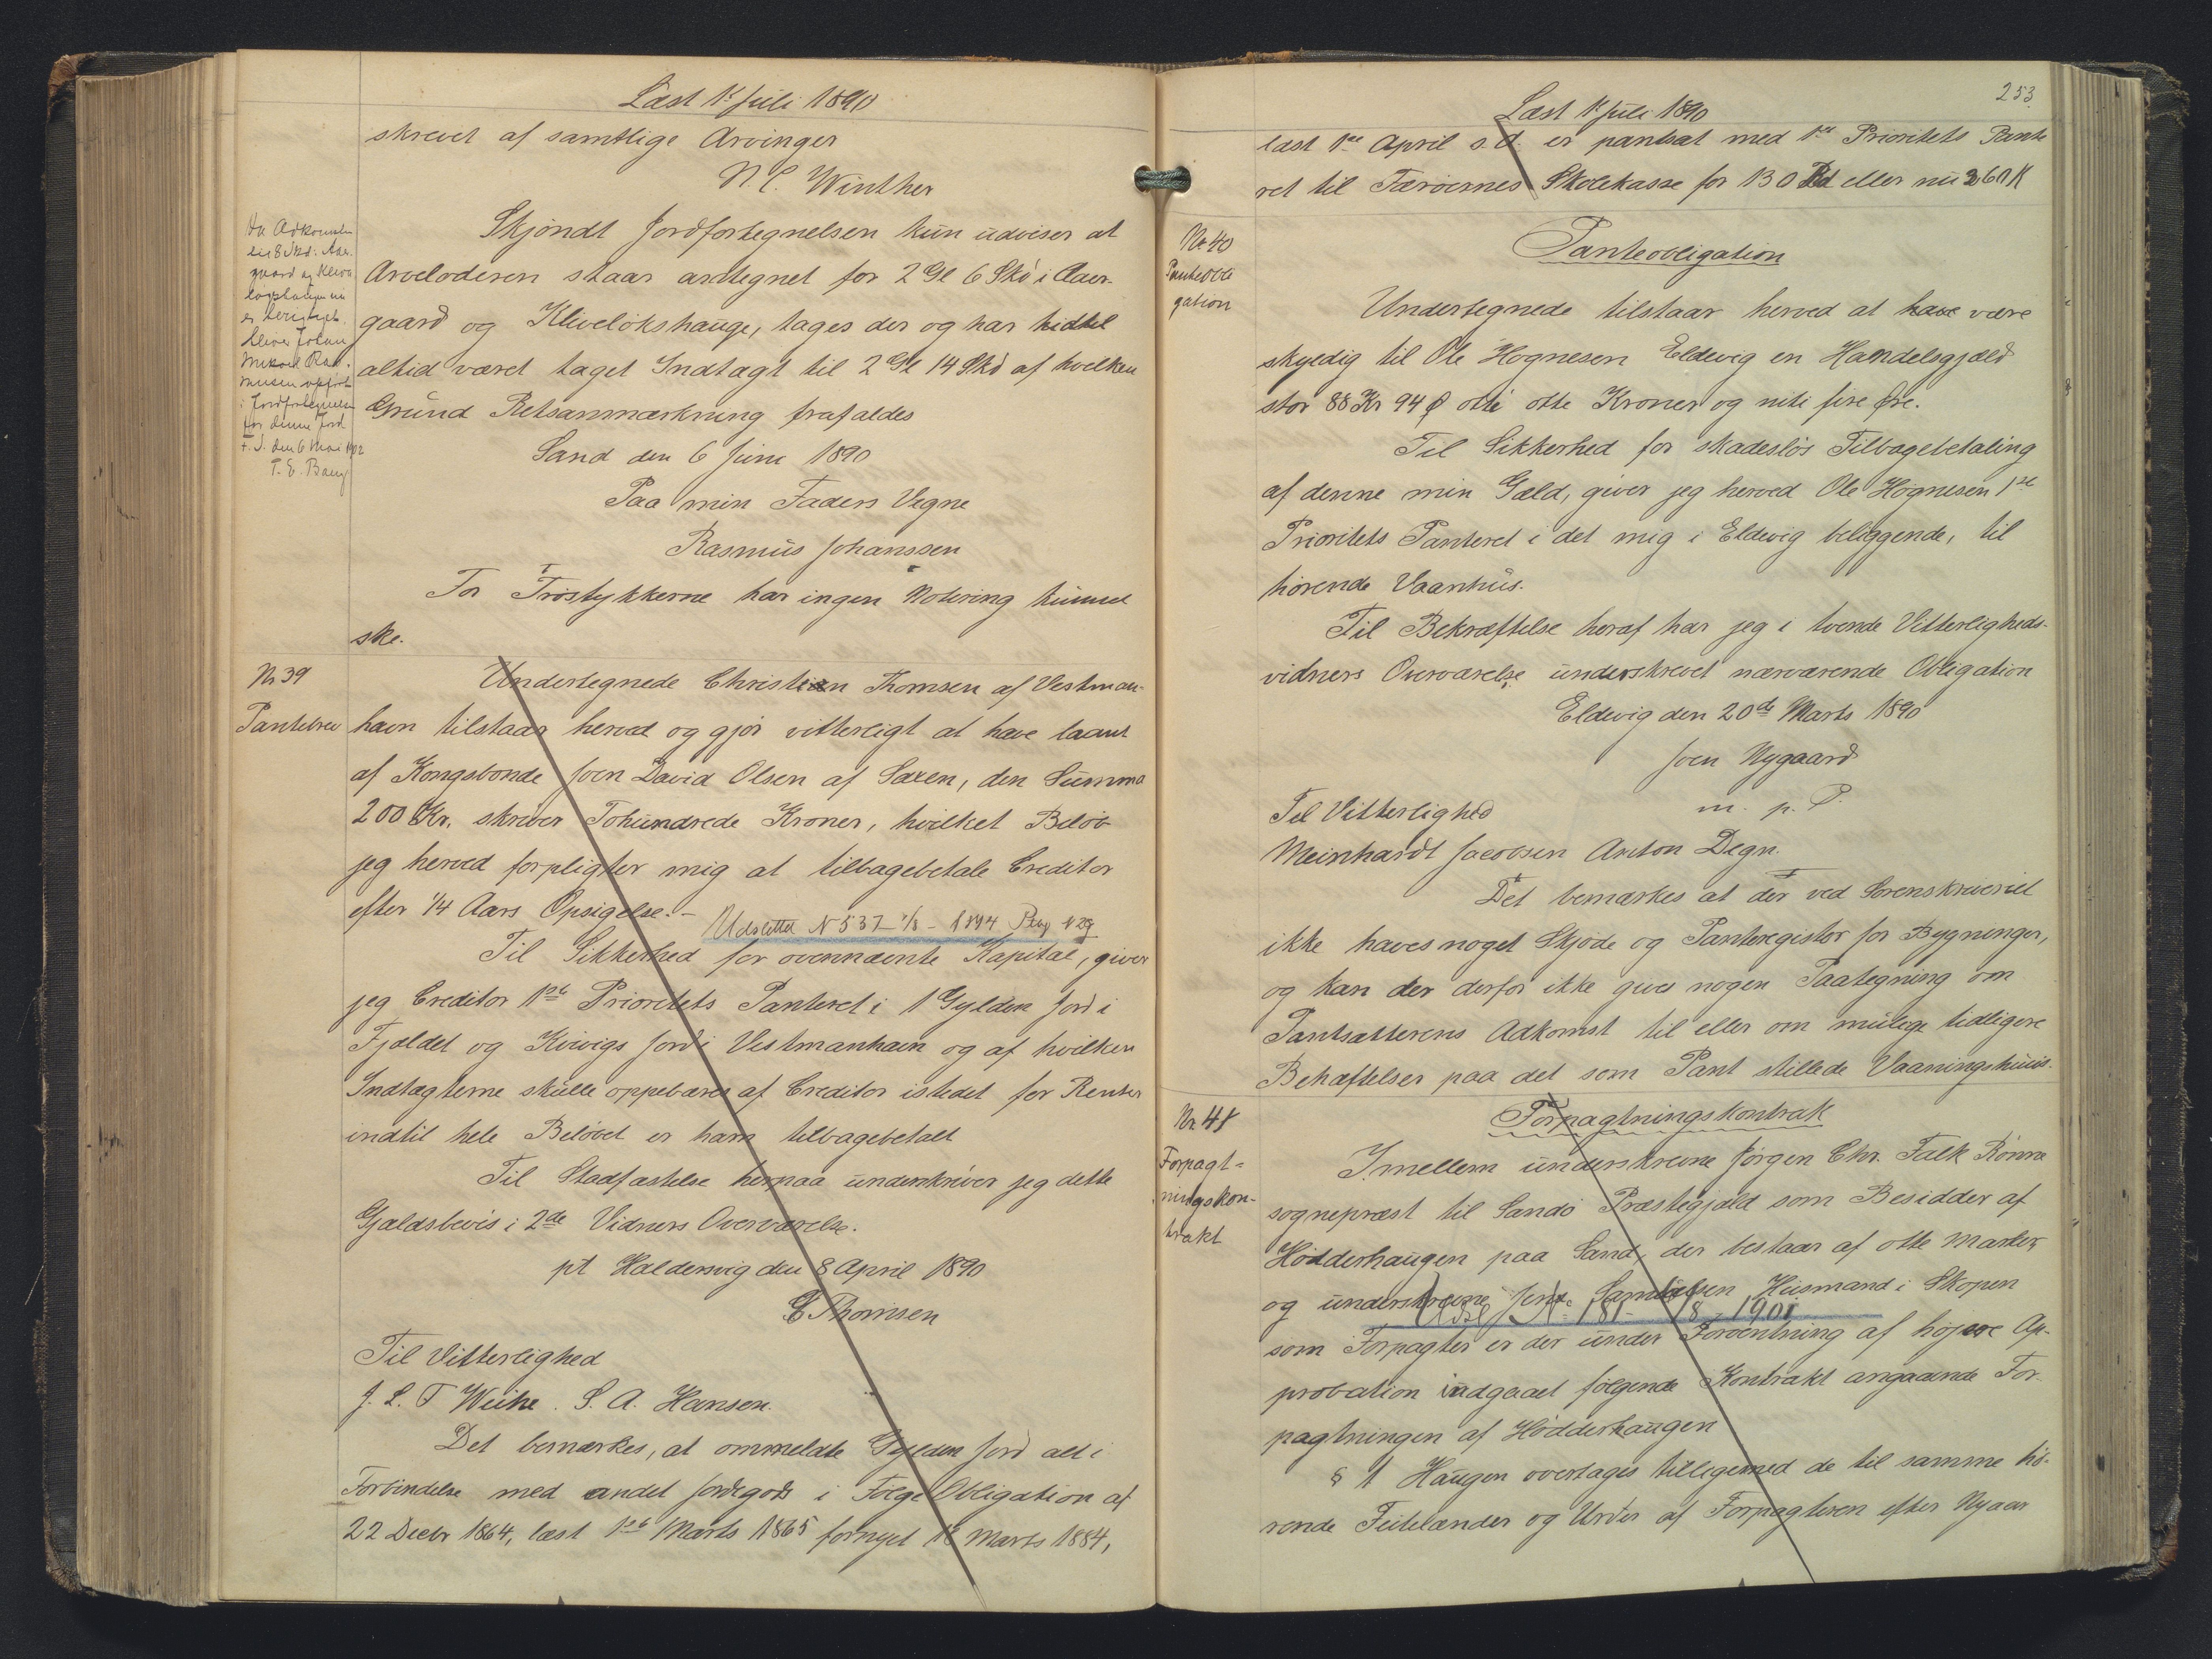 Læst 1' Juli 1890
skrevet af samtlige Arvinger
N. C. Winther
Skjøndt Jordfortegnelsen kun udviser at
Arveloderen staar antegnet for 2 Gl 6 Sk i Aaer-
gaard og Klivelökshauge, tages der og har hidtil
altid været taget Indtægt til 2 Gl 14 Sk af hvilken
Grund Retsanmærkning frafaldes
Sand den 6 Juni 1890
Paa min Faders Vegne
Rasmus Johanssen
For Trøstykkerne har ingen Notering kunnet
ske.
er berigtiget
bliver Johan
i Jordfortegnelsen
for denne Jord
F. S. den 6 Mai 1902
T. E. Bang
Nr 39
Pantebrev
Undertegnede Christian Thomsen af Vestman-
havn tilstaar herved og gjør vitterligt at have laant
af Kongsbonde Joen David Olsen af Saxen, den Summa
200 Kr. skriver Tohundrede Kroner, hvilket Beløb
jeg herved forpligter mig at tilbagebetale Creditor
efter 1/4 Aars Opsigelse.-
Udslettet N 537 1/8 - 1894
Til Sikkerhed for ovennævnte Kapital, giver
jeg Creditor 1ste Prioritets Panteret i 1 Gylden Jord i
Fjældet og Kvivigs Jord i Vestmanhavn og af hvilken
Indtægterne skulle oppebæres af Creditor istedet for Renter
indtil hele Beløbet er ham tilbagebetalt
Til Stadfæstelse herpaa underskriver jeg dette
Gjældsbevis i 2de Vidners Overværelse.
pt Haldersvig den 8 April 1890
C Thomsen
Til Vitterlighed
J. L. T Weihe. S. A. Hansen.
Det bemærkes, at ommeldte Gylden Jord alt i
Forbindelse med andet Jordegods i Følge Obligation af
22 Decbr 1864, læst 1ste Marts 1865 fornyet 18 Marts 1884,
253
Læst 1' Juli 1890
læst 1ste April s. A. er pantsat med 1ste Prioritets Pante
ret til Færøernes Skolekasse for 130 Rd eller nu 260 K
Nr 40
Panteobli
gation
Panteobligation
Undertegnede tilstaar herved at have være
skyldig til Ole Høgnesen Eldevig en Handelsgjæld
stor 88 Kr 94 Ø otti otte Kroner og niti fire Øre.
Til Sikkerhed for skadesløs Tilbagebetaling
af denne min Gæld, giver jeg herved Ole Høgnesen 1ste
Prioritets Panteret i det mig i Eldevig beliggende, til
hörende Vaanhus.
Til Bekræftelse heraf har jeg i tvende Vitterligheds-
vidners Overværelse underskrevet nærværende Obligation
Eldevig den 20de Marts 1890
Joen Nygaard
m. p. P.
Til Vitterlighed
Meinhardt Jacobsen Anton Degn.
Det bemærkes at der ved Sorenskriveriet
ikke haves noget Skjøde og Panteregister for Bygninger,
og kan der derfor ikke gives nogen Paategning om
Pantsætterens Adkomst til eller om mulige tidligere
Behæftelser paa det som Pant stillede Vaaningshuus.
Nr. 41
Forpagt-
ningskon-
trakt
Forpagtningskontrak
Imellem underskrevne Jørgen Chr. Falk Rønne
sognepræst til Sandö Præstegjæld som Besidder af
Hødderhaugen paa Sand, der bestaar af otte Marker,
og underskrevne Jens Samuelsen Husmand i Skopen
Udsl N: 181 - /8 - 1901
som Forpagter er der under Forventning af højere Ap-
probation indgaaet følgende Kontrakt angaaende For-
pagtningen af Hødderhaugen
§ 1 Haugen overtages tilligemed de til samme hö-
rende Feitelænder og Urder af Forpagteren efter Nyaar